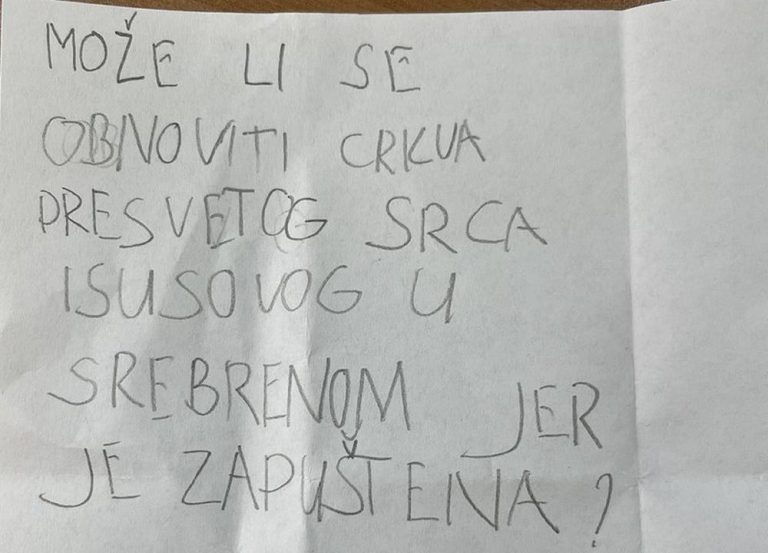 MOŽE LI SE
OBNOVITI CRKVA
PRESVETOG SRCA
ISUSOVOG U
SREBRENOM JER
JE ZAPUŠTENA?